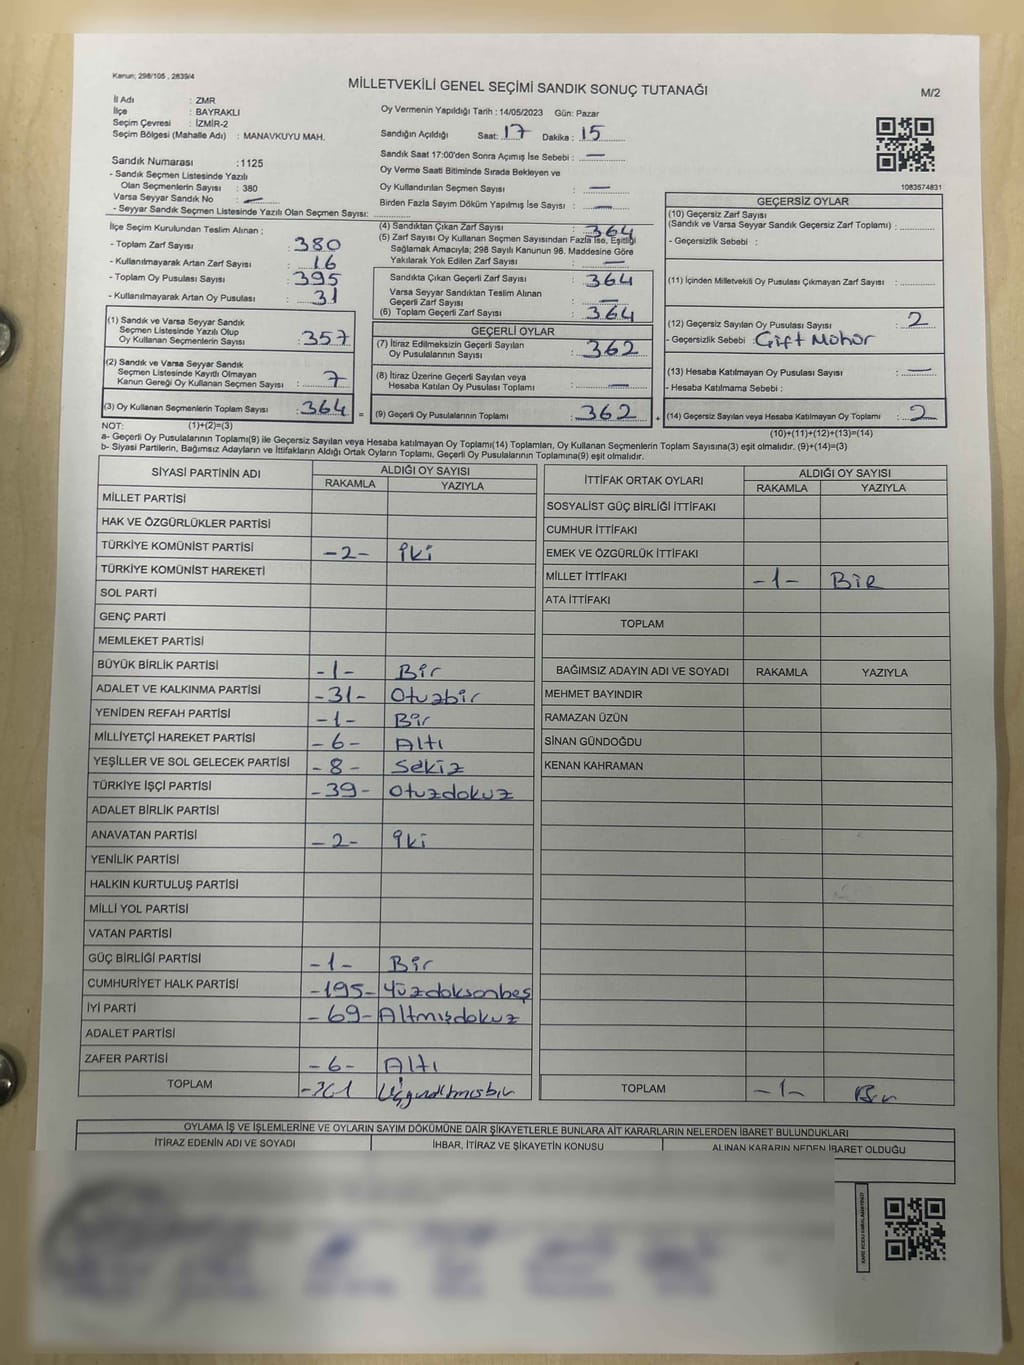 Kanun; 298/105 , 2839/4
MİLLETVEKİLİ GENEL SEÇİMİ SANDIK SONUÇ TUTANAĞI
M/2
İl Adı : ZMR
İlçe : BAYRAKLI
Seçim Çevresi : İZMİR-2
Seçim Bölgesi (Mahalle Adı) : MANAVKUYU MAH.
Sandık Numarası :1125
- Sandık Seçmen Listesinde Yazılı
Olan Seçmenlerin Sayısı : 380
Varsa Seyyar Sandık No : —
- Seyyar Sandık Seçmen Listesinde Yazılı Olan Seçmen Sayısı:
Oy Vermenin Yapıldığı Tarih : 14/05/2023 Gün: Pazar
Sandığın Açıldığı Saat: 17 Dakika : 15
Sandık Saat 17:00'den Sonra Açımış İse Sebebi : —
Oy Verme Saati Bitiminde Sırada Bekleyen ve
Oy Kullandırılan Seçmen Sayısı : —
Birden Fazla Sayım Döküm Yapılmış İse Sayısı : —
1083574831
İlçe Seçim Kurulundan Teslim Alınan :
- Toplam Zarf Sayısı : 380
- Kullanılmayarak Artan Zarf Sayısı : 16
- Toplam Oy Pusulası Sayısı : 395
- Kullanılmayarak Artan Oy Pusulası : 31
(1) Sandık ve Varsa Seyyar Sandık
Seçmen Listesinde Yazılı Olup
Oy Kullanan Seçmenlerin Sayısı : 357
(2) Sandık ve Varsa Seyyar Sandık
Seçmen Listesinde Kayıtlı Olmayan
Kanun Gereği Oy Kullanan Seçmen Sayısı : 7
(3) Oy Kullanan Seçmenlerin Toplam Sayısı : 364 =
(1)+(2)=(3)
(4) Sandıktan Çıkan Zarf Sayısı : 364
(5) Zarf Sayısı Oy Kullanan Seçmen Sayısından Fazla İse, Eşitliği
Sağlamak Amacıyla; 298 Sayılı Kanunun 98. Maddesine Göre
Yakılarak Yok Edilen Zarf Sayısı : —
Sandıkta Çıkan Geçerli Zarf Sayısı : 364
Varsa Seyyar Sandıktan Teslim Alınan
Geçerli Zarf Sayısı : —
(6) Toplam Geçerli Zarf Sayısı : 364
GEÇERLİ OYLAR
(7) İtiraz Edilmeksizin Geçerli Sayılan
Oy Pusulalarının Sayısı : 362
(8) İtiraz Üzerine Geçerli Sayılan veya
Hesaba Katılan Oy Pusulası Toplamı : —
(9) Geçerli Oy Pusulalarının Toplamı : 362 +
GEÇERSİZ OYLAR
(10) Geçersiz Zarf Sayısı
(Sandık ve Varsa Seyyar Sandık Geçersiz Zarf Toplamı) :
- Geçersizlik Sebebi :
(11) İçinden Milletvekili Oy Pusulası Çıkmayan Zarf Sayısı :
(12) Geçersiz Sayılan Oy Pusulası Sayısı : 2
- Geçersizlik Sebebi : Çift Mühür
(13) Hesaba Katılmayan Oy Pusulası Sayısı : —
- Hesaba Katılmama Sebebi :
(14) Geçersiz Sayılan veya Hesaba Katılmayan Oy Toplamı : 2
(10)+(11)+(12)+(13)=(14)
NOT:
a- Geçerli Oy Pusulalarının Toplamı(9) ile Geçersiz Sayılan veya Hesaba katılmayan Oy Toplamı(14) Toplamları, Oy Kullanan Seçmenlerin Toplam Sayısına(3) eşit olmalıdır. (9)+(14)=(3)
b- Siyasi Partilerin, Bağımsız Adayların ve İttifakların Aldığı Ortak Oyların Toplamı, Geçerli Oy Pusulalarının Toplamına(9) eşit olmalıdır.
SİYASİ PARTİNİN ADI ALDIĞI OY SAYISI
RAKAMLA YAZIYLA
MİLLET PARTİSİ
HAK VE ÖZGÜRLÜKLER PARTİSİ
TÜRKİYE KOMÜNİST PARTİSİ -2- İki
TÜRKİYE KOMÜNİST HAREKETİ
SOL PARTİ
GENÇ PARTİ
MEMLEKET PARTİSİ
BÜYÜK BİRLİK PARTİSİ -1- Bir
ADALET VE KALKINMA PARTİSİ -31- Otuzbir
YENİDEN REFAH PARTİSİ -1- Bir
MİLLİYETÇİ HAREKET PARTİSİ -6- Altı
YEŞİLLER VE SOL GELECEK PARTİSİ -8- Sekiz
TÜRKİYE İŞÇİ PARTİSİ -39- Otuzdokuz
ADALET BİRLİK PARTİSİ
ANAVATAN PARTİSİ -2- İki
YENİLİK PARTİSİ
HALKIN KURTULUŞ PARTİSİ
MİLLİ YOL PARTİSİ
VATAN PARTİSİ
GÜÇ BİRLİĞİ PARTİSİ -1- Bir
CUMHURİYET HALK PARTİSİ -195- Yüzdoksanbeş
İYİ PARTİ -69- Altmışdokuz
ADALET PARTİSİ
ZAFER PARTİSİ -6- Altı
TOPLAM -361 Üçyüzaltmışbir
İTTİFAK ORTAK OYLARI ALDIĞI OY SAYISI
RAKAMLA YAZIYLA
SOSYALİST GÜÇ BİRLİĞİ İTTİFAKI
CUMHUR İTTİFAKI
EMEK VE ÖZGÜRLÜK İTTİFAKI
MİLLET İTTİFAKI -1- BİR
ATA İTTİFAKI
TOPLAM
BAĞIMSIZ ADAYIN ADI VE SOYADI RAKAMLA YAZIYLA
MEHMET BAYINDIR
RAMAZAN ÜZÜN
SİNAN GÜNDOĞDU
KENAN KAHRAMAN
TOPLAM -1- Bir
OYLAMA İŞ VE İŞLEMLERİNE VE OYLARIN SAYIM DÖKÜMÜNE DAİR ŞİKAYETLERLE BUNLARA AİT KARARLARIN NELERDEN İBARET BULUNDUKLARI
İTİRAZ EDENİN ADI VE SOYADI İHBAR, İTİRAZ VE ŞİKAYETİN KONUSU ALINAN KARARIN NEDEN İBARET OLDUĞU